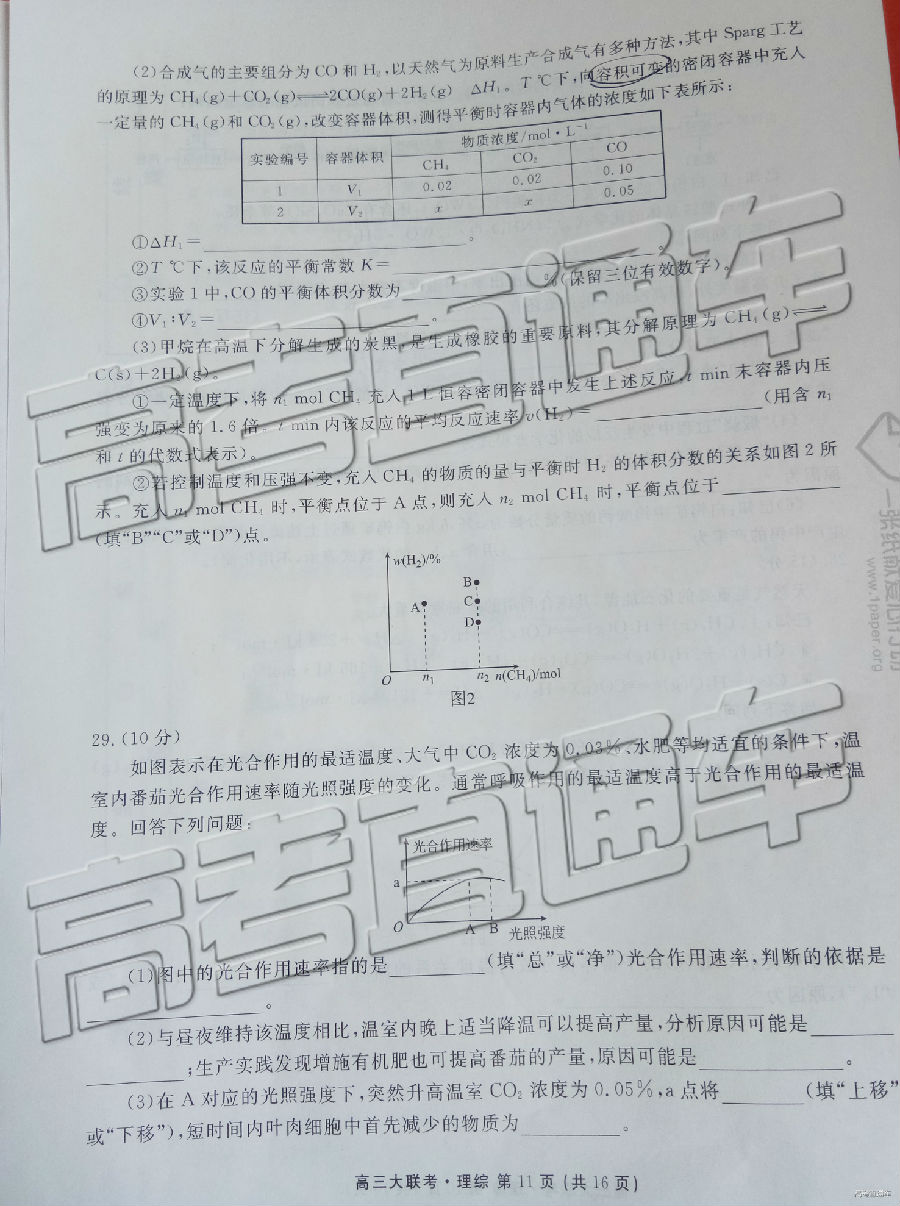 (2)合成气的主要组分为 CO 和 H₂,以天然气为原料生产合成气有多种方法,其中 Sparg 工艺
的原理为 CH₄(g)+CO₂(g)⇌2CO(g)+2H₂(g) ΔH₁。T ℃下,向容积可变的密闭容器中充入
一定量的 CH₄(g)和 CO₂(g),改变容器体积,测得平衡时容器内气体的浓度如下表所示:
实验编号 容器体积 物质浓度/mol·L⁻¹
CH₄ CO₂ CO
1 V₁ 0.02 0.02 0.10
2 V₂ x x 0.05
①ΔH₁=。
②T ℃下,该反应的平衡常数 K=。
③实验 1 中,CO 的平衡体积分数为%(保留三位有效数字)。
④V₁∶V₂=。
(3)甲烷在高温下分解生成的炭黑,是生成橡胶的重要原料,其分解原理为 CH₄(g)⇌
C(s)+2H₂(g)。
①一定温度下,将 n₁ mol CH₄ 充入 1 L 恒容密闭容器中发生上述反应,t min 末容器内压
强变为原来的 1.6 倍。t min 内该反应的平均反应速率 v(H₂)=(用含 n₁
和 t 的代数式表示)。
②若控制温度和压强不变,充入 CH₄ 的物质的量与平衡时 H₂ 的体积分数的关系如图 2 所
示。充入 n₁ mol CH₄ 时,平衡点位于 A 点,则充入 n₂ mol CH₄ 时,平衡点位于
(填“B”“C”或“D”)点。
w(H₂)/%
B
A C
D
O n₁ n₂ n(CH₄)/mol
图2
29.(10 分)
如图表示在光合作用的最适温度、大气中 CO₂ 浓度为 0.03%、水肥等均适宜的条件下,温
室内番茄光合作用速率随光照强度的变化。通常呼吸作用的最适温度高于光合作用的最适温
度。回答下列问题:
光合作用速率
a
O A B 光照强度
(1)图中的光合作用速率指的是(填“总”或“净”)光合作用速率,判断的依据是
。
(2)与昼夜维持该温度相比,温室内晚上适当降温可以提高产量,分析原因可能是
;生产实践发现增施有机肥也可提高番茄的产量,原因可能是。
(3)在 A 对应的光照强度下,突然升高温室 CO₂ 浓度为 0.05%,a 点将(填“上移”
或“下移”),短时间内叶肉细胞中首先减少的物质为。
高三大联考·理综 第 11 页 (共 16 页)
高考直通车
高考直通车
一张纸献爱心行动
www.1paper.org